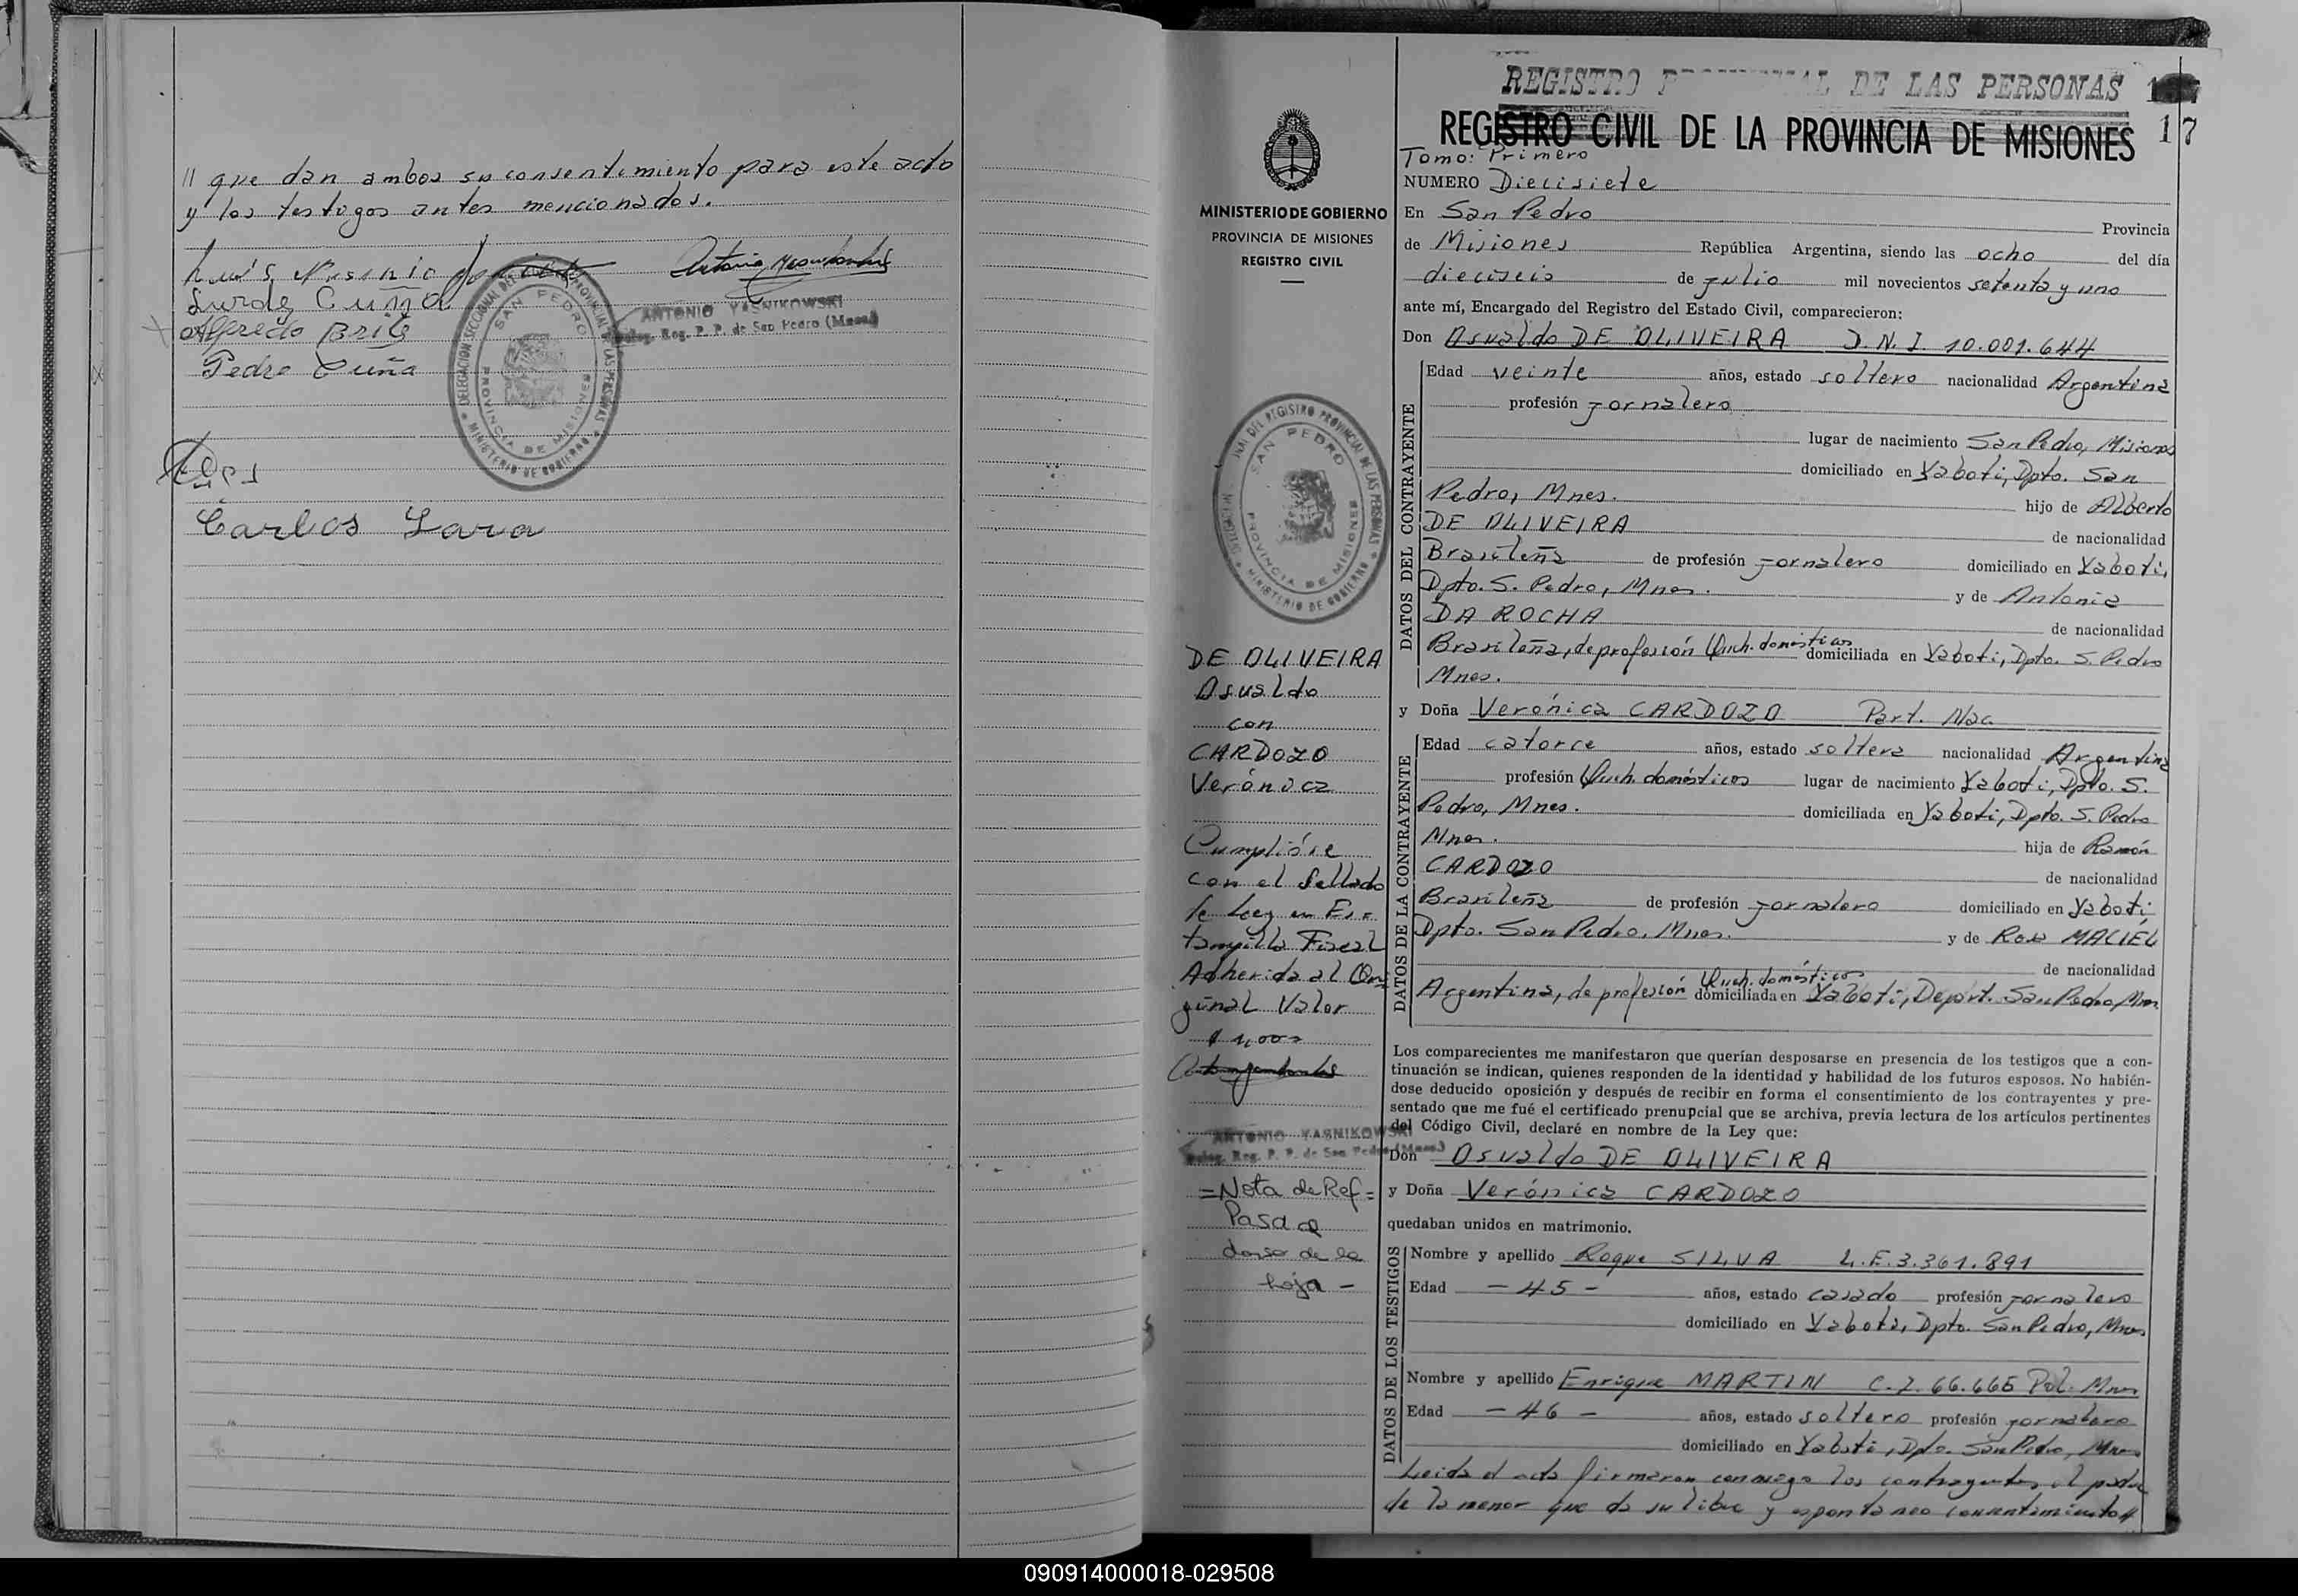 // que dan ambos su consentimiento para este acto
y los testigos antes mencionados.
Alfredo Brite
Pedro Cuña
DELEGACION SECCIONAL DEL REGISTRO PROVINCIAL DE LAS PERSONAS
SAN PEDRO
PROVINCIA DE MISIONES
MINISTERIO DE GOBIERNO
ANTONIO YASNIKOWSKI
Deleg. Reg. P. P. de San Pedro (Mnes)
Carlos Lara
MINISTERIO DE GOBIERNO
PROVINCIA DE MISIONES
REGISTRO CIVIL
SAN PEDRO
PROVINCIA DE MISIONES
MINISTERIO DE GOBIERNO
DE OLIVEIRA
Osvaldo
con
CARDOZO
Verónica
Cumplióse
con el Sellado
de Ley en Es=
tampilla Fiscal
Adherida al Ori
ginal Valor
ANTONIO YASNIKOWSKI
Deleg. Reg. P. P. de San Pedro (Mnes)
=Nota de Ref=
Pasa a
dorso de la
hoja -
REGISTRO PROVINCIAL DE LAS PERSONAS
REGISTRO CIVIL DE LA PROVINCIA DE MISIONES 17
Tomo: Primero
NUMERO Diecisiete
En San Pedro Provincia
de Misiones República Argentina, siendo las ocho del día
dieciseis de julio mil novecientos setenta y uno
ante mí, Encargado del Registro del Estado Civil, comparecieron:
Don Osvaldo DE OLIVEIRA D.N.I. 10.001.644
DATOS DEL CONTRAYENTE
Edad veinte años, estado soltero nacionalidad Argentina
profesión jornalero
lugar de nacimiento San Pedro, Misiones
domiciliado en Yaboti, Dpto. San
Pedro, Mnes. hijo de Alberto
DE OLIVEIRA de nacionalidad
Brasileña de profesión jornalero domiciliado en Yaboti,
Dpto. S. Pedro, Mnes. y de Antonia
DA ROCHA de nacionalidad
Brasileña, de profesión Queh. domésticos domiciliada en Yaboti, Dpto. S. Pedro
Mnes.
y Doña Verónica CARDOZO Part. Nac.
DATOS DE LA CONTRAYENTE
Edad catorce años, estado soltera nacionalidad Argentina
profesión Queh. domésticos lugar de nacimiento Yaboti, Dpto. S.
Pedro, Mnes. domiciliada en Yaboti, Dpto. S. Pedro
Mnes. hija de Ramón
CARDOZO de nacionalidad
Brasileña de profesión jornalero domiciliado en Yaboti
Dpto. San Pedro, Mnes. y de Rosa MACIEL
de nacionalidad
Argentina, de profesión Queh. domésticos domiciliada en Yaboti, Depart. San Pedro, Mnes
Los comparecientes me manifestaron que querían desposarse en presencia de los testigos que a con-
tinuación se indican, quienes responden de la identidad y habilidad de los futuros esposos. No habién-
dose deducido oposición y después de recibir en forma el consentimiento de los contrayentes y pre-
sentado que me fué el certificado prenupcial que se archiva, previa lectura de los artículos pertinentes
del Código Civil, declaré en nombre de la Ley que:
Don Osvaldo DE OLIVEIRA
y Doña Verónica CARDOZO
quedaban unidos en matrimonio.
DATOS DE LOS TESTIGOS
Nombre y apellido Roque SILVA L.E. 3.361.891
Edad - 45 - años, estado casado profesión jornalero
domiciliado en Yaboti, Dpto. San Pedro, Mnes
Nombre y apellido Enrique MARTIN C.I. 66.665 Pol. Mnes
Edad - 46 - años, estado soltero profesión jornalero
domiciliado en Yaboti, Dpto. San Pedro, Mnes
Leida el acta firmaron conmigo los contrayentes, el padre
de la menor que da su libre y espontaneo consentimiento //
090914000018-029508